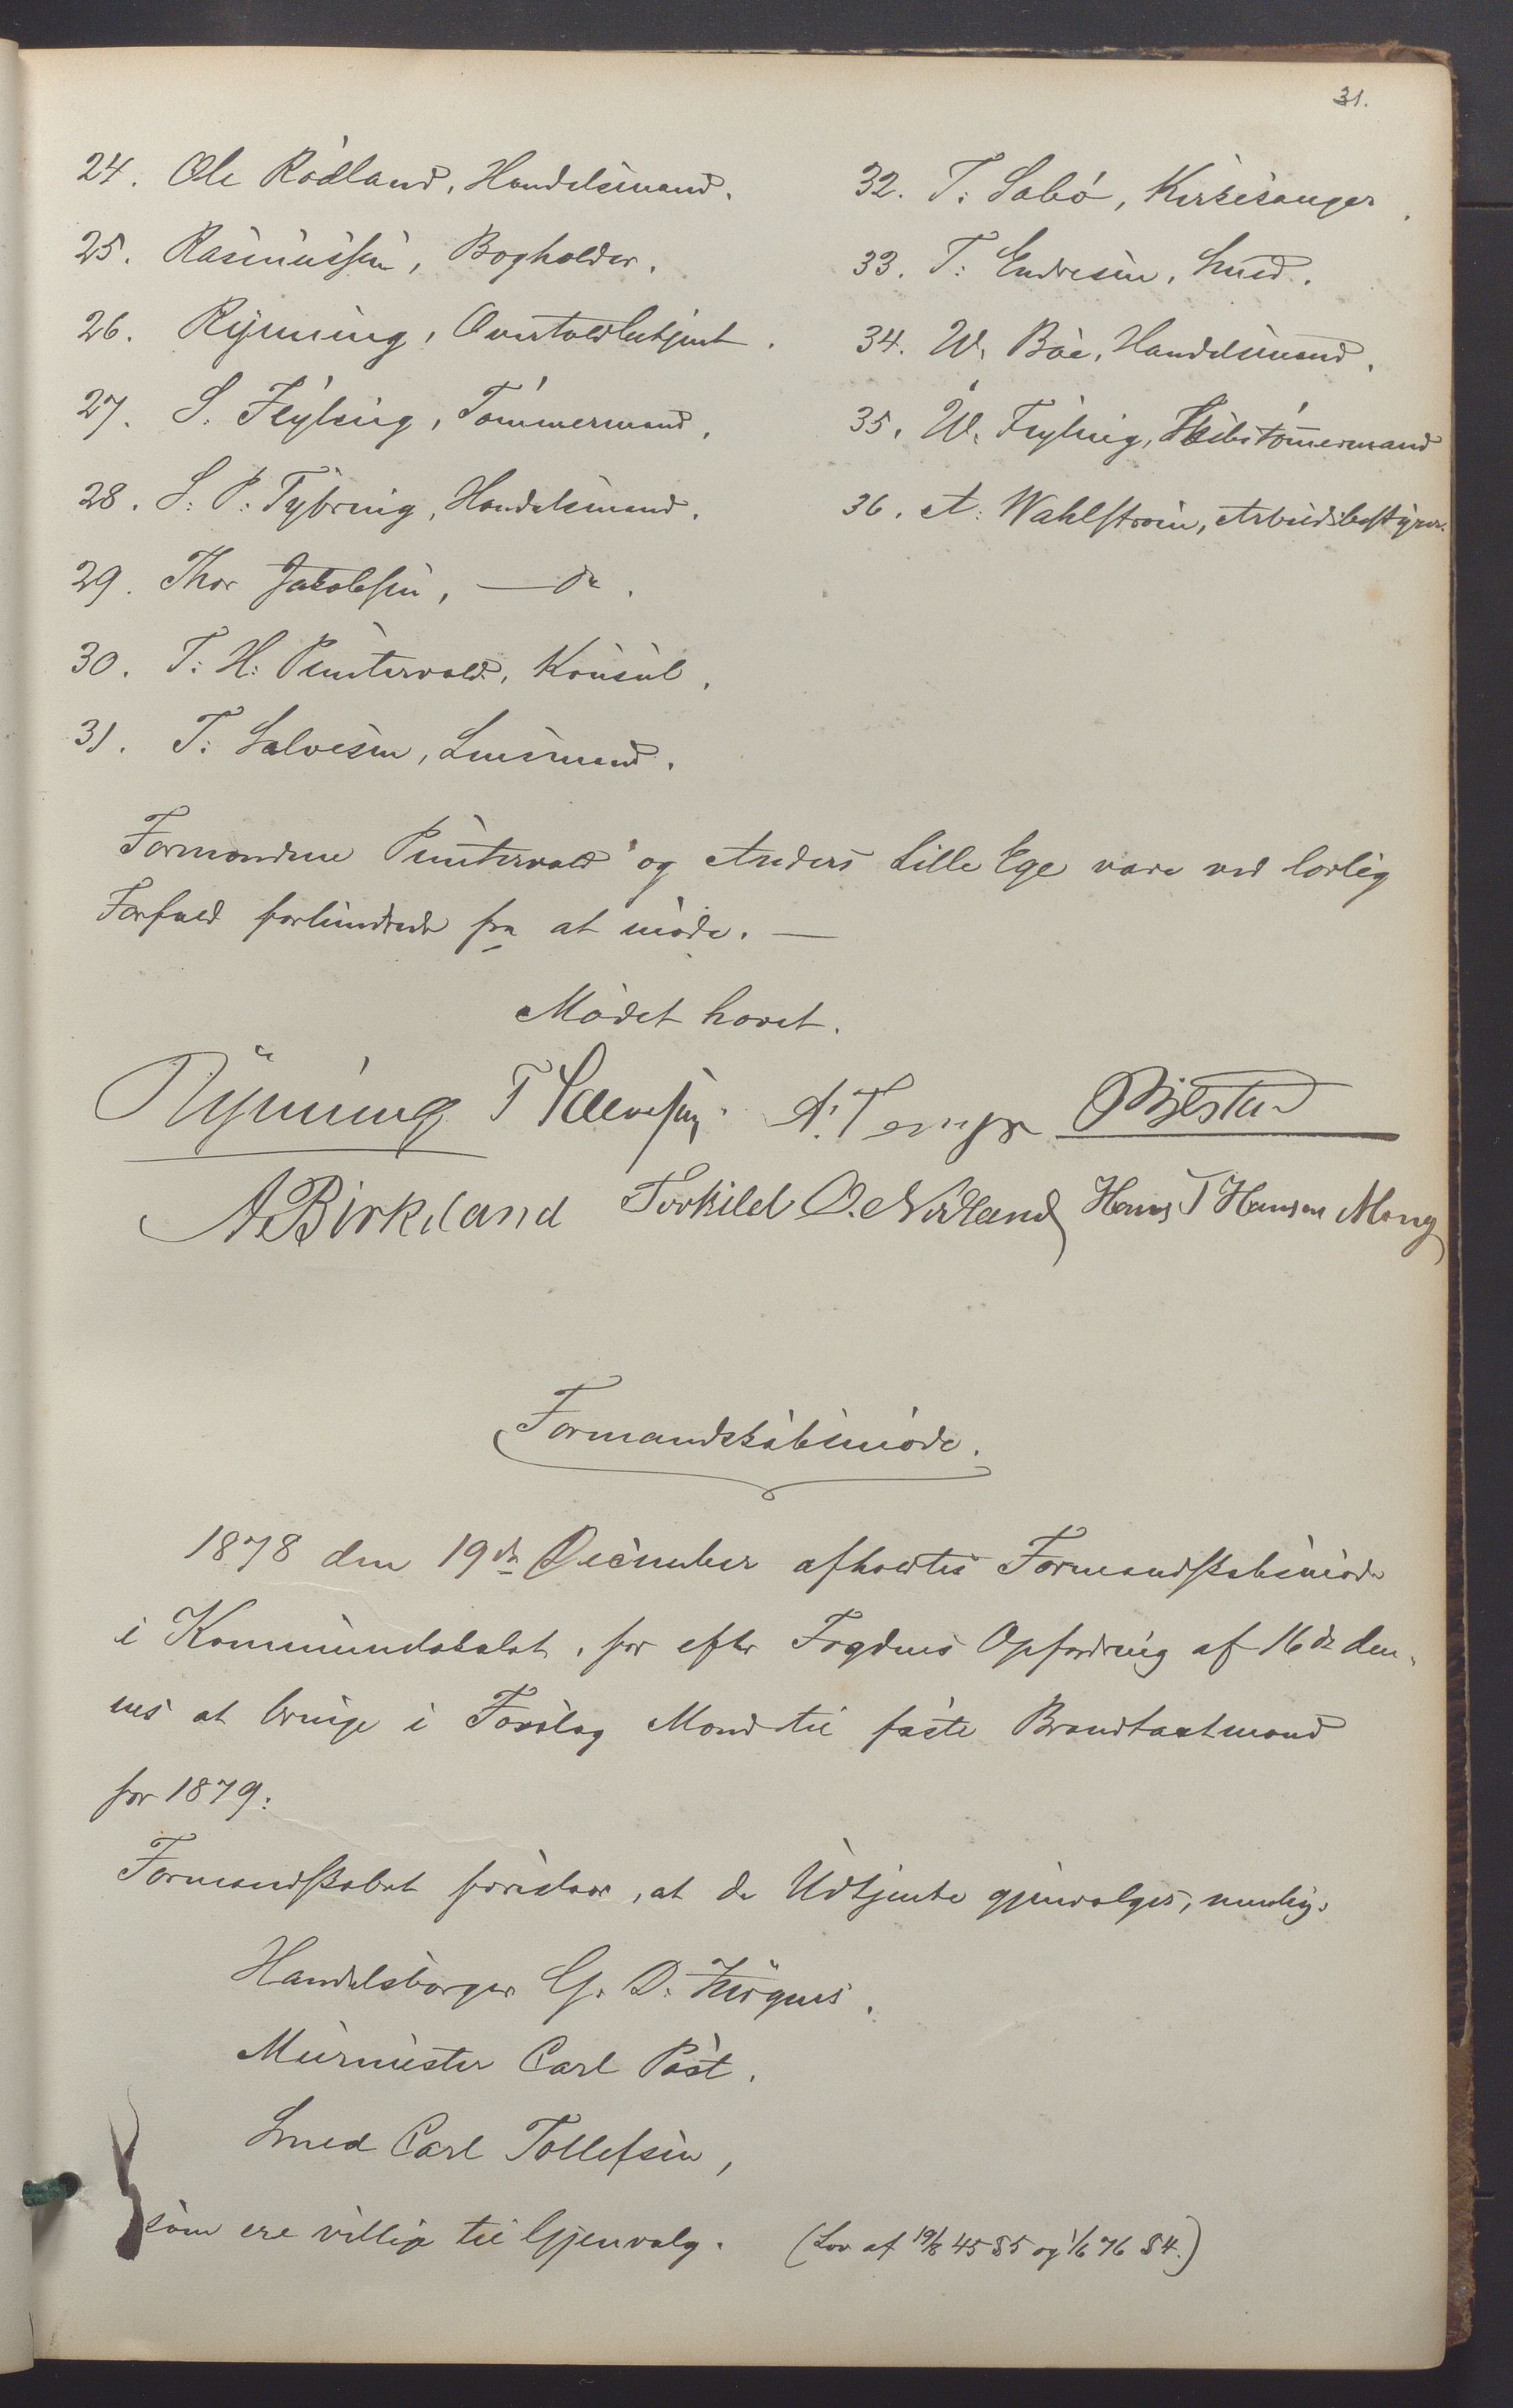 31.
24. Ole Rödland, Handelsmand.
25. Rasmussen, Bogholder.
26. Rynning, Overtoldbetjent.
27. S. Feyling, Tömmermand.
28. S. P. Tybring, Handelsmand.
29. Thor Jakobsen, — do.
30. T. H. Puntervold, Konsul.
31. T. Salvesen, Lensmand.
32. T. Sabö, Kirkesanger.
33. T. Endresen, Smed.
34. W. Böe, Handelsmand.
35. W. Feyling, Skibstömmermand
36. A. Wahlstrøm, Arbeidsbestyrer.
Formændene Puntervold og Anders Lille Ege vare ved lovlig
Forfald forhindrede fra at møde. —
Mödet hævet.
Rynning T Salvesen. A. Tengs
A Birkeland Torkild O. Nodland Hans T Hansen Mong
Formandskabsmöde.
1878 den 19de December afholdtes Formandskabsmöde
i Kommunelokalet, for efter Fogdens Opfordring af 16de den-
nes at bringe i Forslag Mænd til faste Brandtaxtmænd
for 1879:
Formandskabet foreslaar, at de Udtjente gjenvælges, nemlig:
Handelsborger G. D.
Murmester Carl Post.
Smed Carl Tollefsen,
som ere villige til Gjenvalg. (Lov af 19/8 45 § 5 og 1/6 76 § 4.)